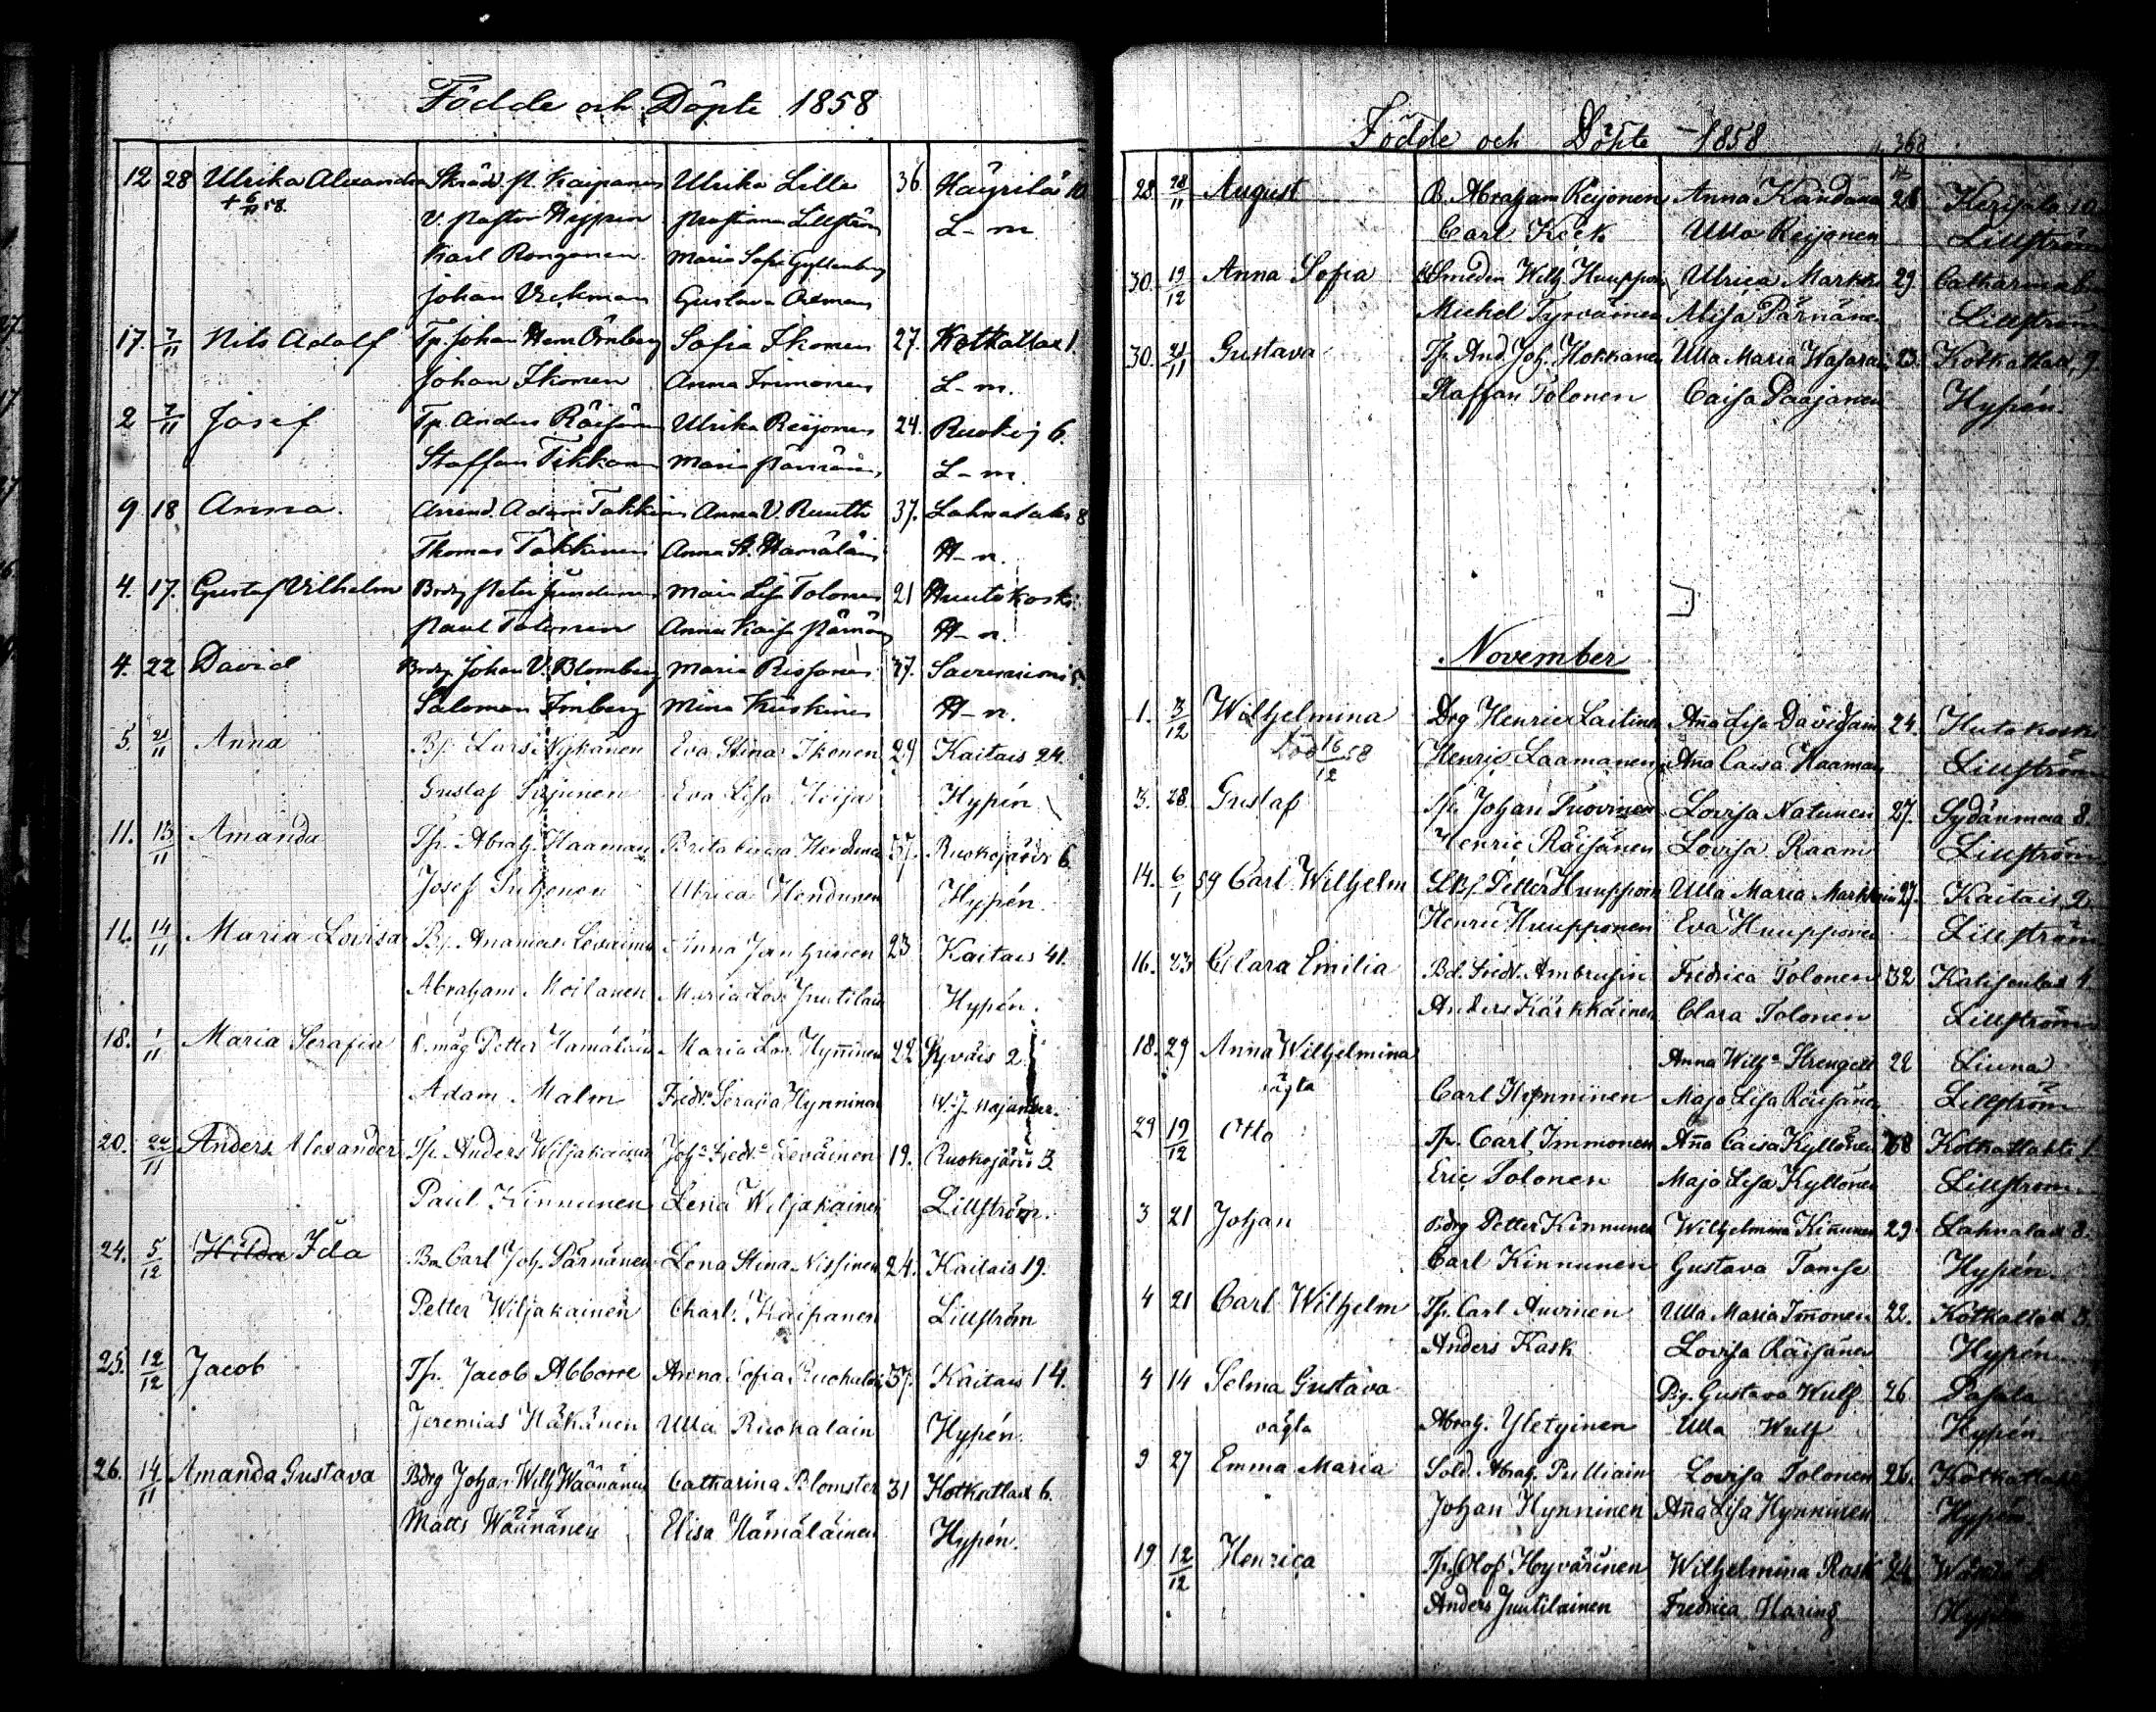 Födde och Döpte 1858
12 28 Ulrika Alexandra Skräd. P. Kaipanen Ulrika Lille 36 Häyrilä 10
+ 6/11 58. V. pastor Hyppen pastorinna Lillström L-m
Karl Rongonen Maria Sofia Gyllenberg
Johan Vickman Gustava
17. 7/11 Nils Adolf Tp. Johan Henr. Örnberg Sofia Ikonen 27. Kotkatlax 1
Johan Ikonen Anna Immonen L-m.
2 7/11 Josef Tp. Anders Räisänen Ulrika Reijonen 24. Ruokoj 6.
Staffan Tikkanen Maria Pärnänen L-m.
9 18 Anna. Arrend. Adam Takkinen Anna V. Ruuth 37. Lahnalaks 8
Thomas Takkinen Anna St. Hämäläin H-n.
4. 17. Gustaf Vilhelm Brdrg Peter Maria Lisa Tolonen 21 Huutokoski
Paul Tolonen Anna Kaisa Pärnän H-n.
4. 22 David Brdrg Johan V. Blomberg Maria Rissanen 37. Savuniemi 5.
Salomon Imberg Mina Kuiskinen H-n.
5. 21/11 Anna Bf. Lars Nykänen Eva Stina Ikonen 29 Kaitais 24.
Gustaf Sirjunen Eva Lisa Hoija Hypén
11. 13/11 Amanda Tp. Abrah. Haaman Brita 37. Ruokojärvi 6
Josef Ulrica Hendunen Hypén.
11. 14/11 Maria Lovisa Bf. Ananias Leväinen Anna Janhunen 23 Kaitais 41.
Abraham Moilanen Maria Lov. Juutilain Hypén.
18. 1/11 Maria Serafia B.måg Petter Hämäläin Maria Lov. Hyninen 22 Syväis 2
Adam Malm Fredr. Serafia Hynninen W. J. Majander.
20. 22/11 Anders Alexander Tp. Anders Wiljakainen Joha Fredr.a Leväinen 19. Ruokojärvi 3
Paul Kinnunen Lena Wiljakainen Lillström.
24. 5/12 Hilda Ida Bn Carl Joh. Pärnänen Lena Stina Nissinen 24. Kaitais 19.
Petter Wiljakainen Charl. Kaipanen Lillström
25. 12/12 Jacob Tp. Jacob Abborre Anna Sofia Ruokalain 37. Kaitais 14.
Jeremias Häkänen Ulla Ruokalain Hypén.
26. 14/11 Amanda Gustava Bdrg Johan Wilh Wäänänen Catharina Blomster 31 Kotkatlax 6.
Matts Wäänänen Elisa Hämäläinen Hypén.
Födde och Döpte 1858 368
28. 28/11 August B. Abraham Reijonen Anna Kandana 28 10
Carl Keck Ulla Reijonen Lillström
30. 19/12 Anna Sofia Smeden Wilh. Huuppon Ulrica Markki 29. Catharina
Michel Tyrväinen Pärnänen Lillström
30. 21/11 Gustava Tp. And. Joh. Hokkanen Ulla Maria Wasara 23. Kotkatlax 9
Staffan Tolonen Caisa Paajanen Hypén.
November
1. 13/12 Wilhelmina Drg Henric Laitinen Ana Lisa Davidsain 24. Hutokoski
död 16/12 58 Henric Laamanen Ana Caisa Haaman Lillström
3. 28. Gustaf Tp. Johan Tuovinen Lovisa Natunen 27. Sydänmaa 8
Henric Räisänen Lovisa Raam Lillström
14. 6/1 59 Carl Wilhelm Petter Huuppon Ulla Maria Markkain 27. Kaitais 2
Henric Huupponen Eva Huupponen Lillström
16. 23 Clara Emilia Bd. Fredr. Ambrusin Fredrica Tolonen 32 4.
Anders Kärkkäinen Clara Tolonen Lillström
18. 29 Anna Wilhelmina Anna Wilh.a Strengell 22 Liuna
oägta Carl Hynninen Maja Lisa Räisänen Lillström
29 19/12 Otto Tp. Carl Immonen Ana Caisa Kyllönen 38 Kotkatlahti 1
Eric Tolonen Maja Lisa Kyllönen Lillström
3 21 Johan Bdrg Petter Kinnunen Wilhelmina Kinunen 29 Lahnalax 8.
Carl Kinnunen Gustava Hypén.
4 21 Carl Wilhelm Tp. Carl Auvinen Ulla Maria Imonen 22. Kotkatlax 3.
Anders Kask Lovisa Räisänen Hypén
4 14 Selma Gustava Pig. Gustava Wulf 26 Pasala
oägta Abrah. Yletyinen Ulla Wulf Hypén
9 27 Emma Maria Sold. Abrah. Pulliain Lovisa Tolonen 26. Kotkatlax
Johan Hynninen Ana Lisa Hynninen Hypén
19 12/12 Henrica Tp. Olof Hyvärinen Wilhelmina Rask 24
Anders Juutilainen Fredrica Haring Hypén